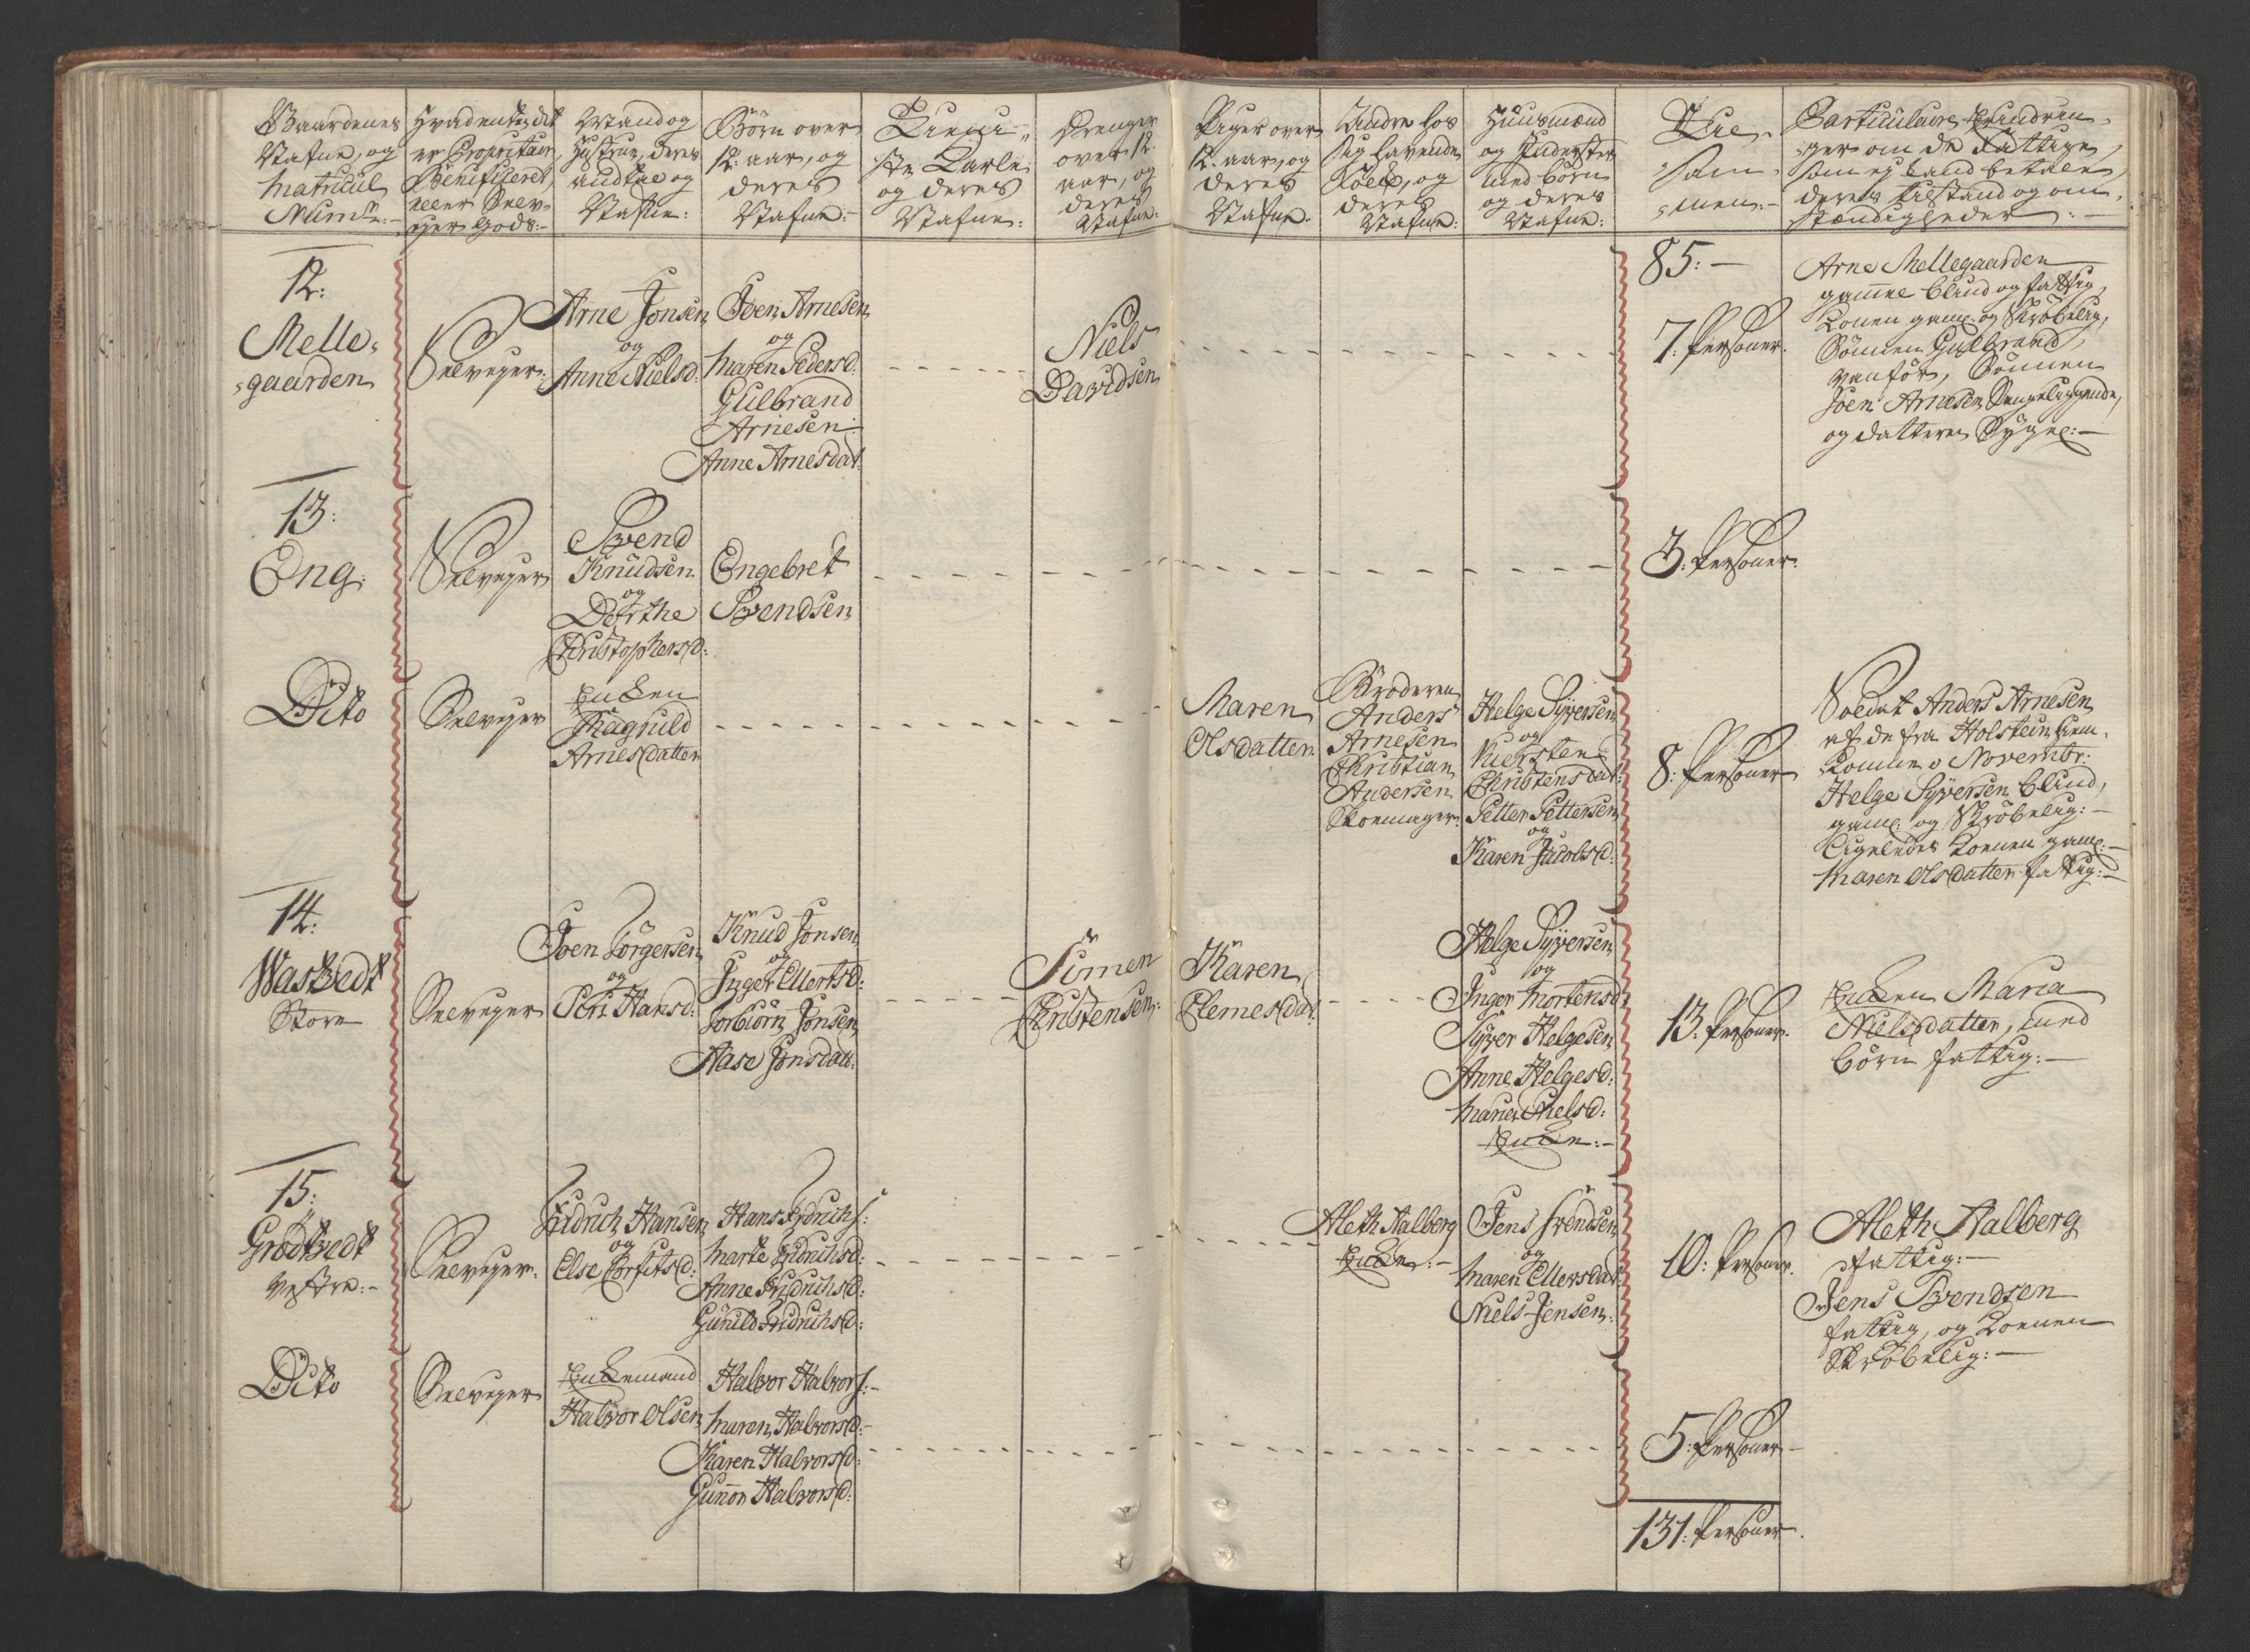 Gaardenes
Nafne, og
Matricul
Num͞r:-
Hvad enten det
er Proprietair,
Beneficeret,
eller Selv-
eyer Gods:-
Mand og
Hustrue, deres
andtal og
Nafne:
Börn over
12. aar, og
deres
Nafne:-
Tieni-
ste Karle
og deres
Nafne:
Drenger
over 12.
aar, og
deres
Nafne:
Piger over
12. aar, og
deres
Nafne.
Andre hos
sig havende
Folk, og
deres
Nafne:
Huusmænd
og Inderster
med börn
og deres
Nafne:
Til-
sam-
men:-
Particulaire Erindrin-
ger om de Fattige,
som ej kand betale,
deres tilstand og om-
stændigheder:-
12:
Melle-
gaarden
Selveyer:
Arne Jonsen
og
Anne Nielsd:
Joen Arnesen
og
Maren Pedersd:
Gulbrand
Arnesen
Anne Arnesdat:
Niels
Davidsen
85:-
7: Personer.
Arne Mellegaarden
gam̅el blind og fattig,
Konen gaml: og Skröbelig,
Sönnen Gulbrand,
vanför, Sönnen
Joen Arnesen Sengeliggende,
og datteren Sygel:-
13:
Eng:
Selveyer
Svend
Knudsen
og
Dorthe
Christophersd:
Engebret
Svendsen
3: Personer.
Dito
Selveyer
Enken
Ragnild
Arnesdatter
Maren
Olsdatter
Broderen
Anders
Arnesen
Christian
Andersen
Skomager:
Helge Syversen
og
Kiersten
Christensdat:
Petter Pettersen
og
Karen Jacobsd:
8: Personer
Soldat Anders Arnesen
af de fra Holstein hiem-
komne o Novembr:
Helge Syversen blind,
gaml: og Skröbelig:-
ligeledes Konen gaml:-
Maren Olsdatter fattig:-
14:
Wasvedt
Store
Selveyer
Joen Börgersen
og
Siri Hansd:
Knud Jonsen
og
Inger Ellertsd:
Torbiörn Jonsen
Aase Jonsdatt:
Simen
Christensen:
Karen
Clemesdat:
Helge Syversen
og
Inger Mortensd:
Syver Helgesen
Anne Helgesd:
Maria Nielsd:
Enke:-
13: Personer.
Enken Maria
Nielsdatter, med
börn fattig:-
15:
Grödtvedt
Vestre:-
Selveyer:
Fridrich Hansen
og
Else Corfitsd:
Hans Fridrichs:
Marte Fridrichsd:
Anne Fridrichsd:
Gunild Fridrichsd:
Aleth Aalberg
Enke:-
Jens Svendsen
og
Maren Ellersdat:
Niels Jensen:
10: Personer.
Aleth Aalberg
fattig:-
Jens Svendsen
fattig, og Konen
Skröbelig:-
Dito
Selveyer
Enkemand
Halvor Olsen
Halvor Halvors:-
Maren Halvorsd:-
Karen Halvorsd:
Gun̅or Halvorsd:
5: Personer-
131: Personer.